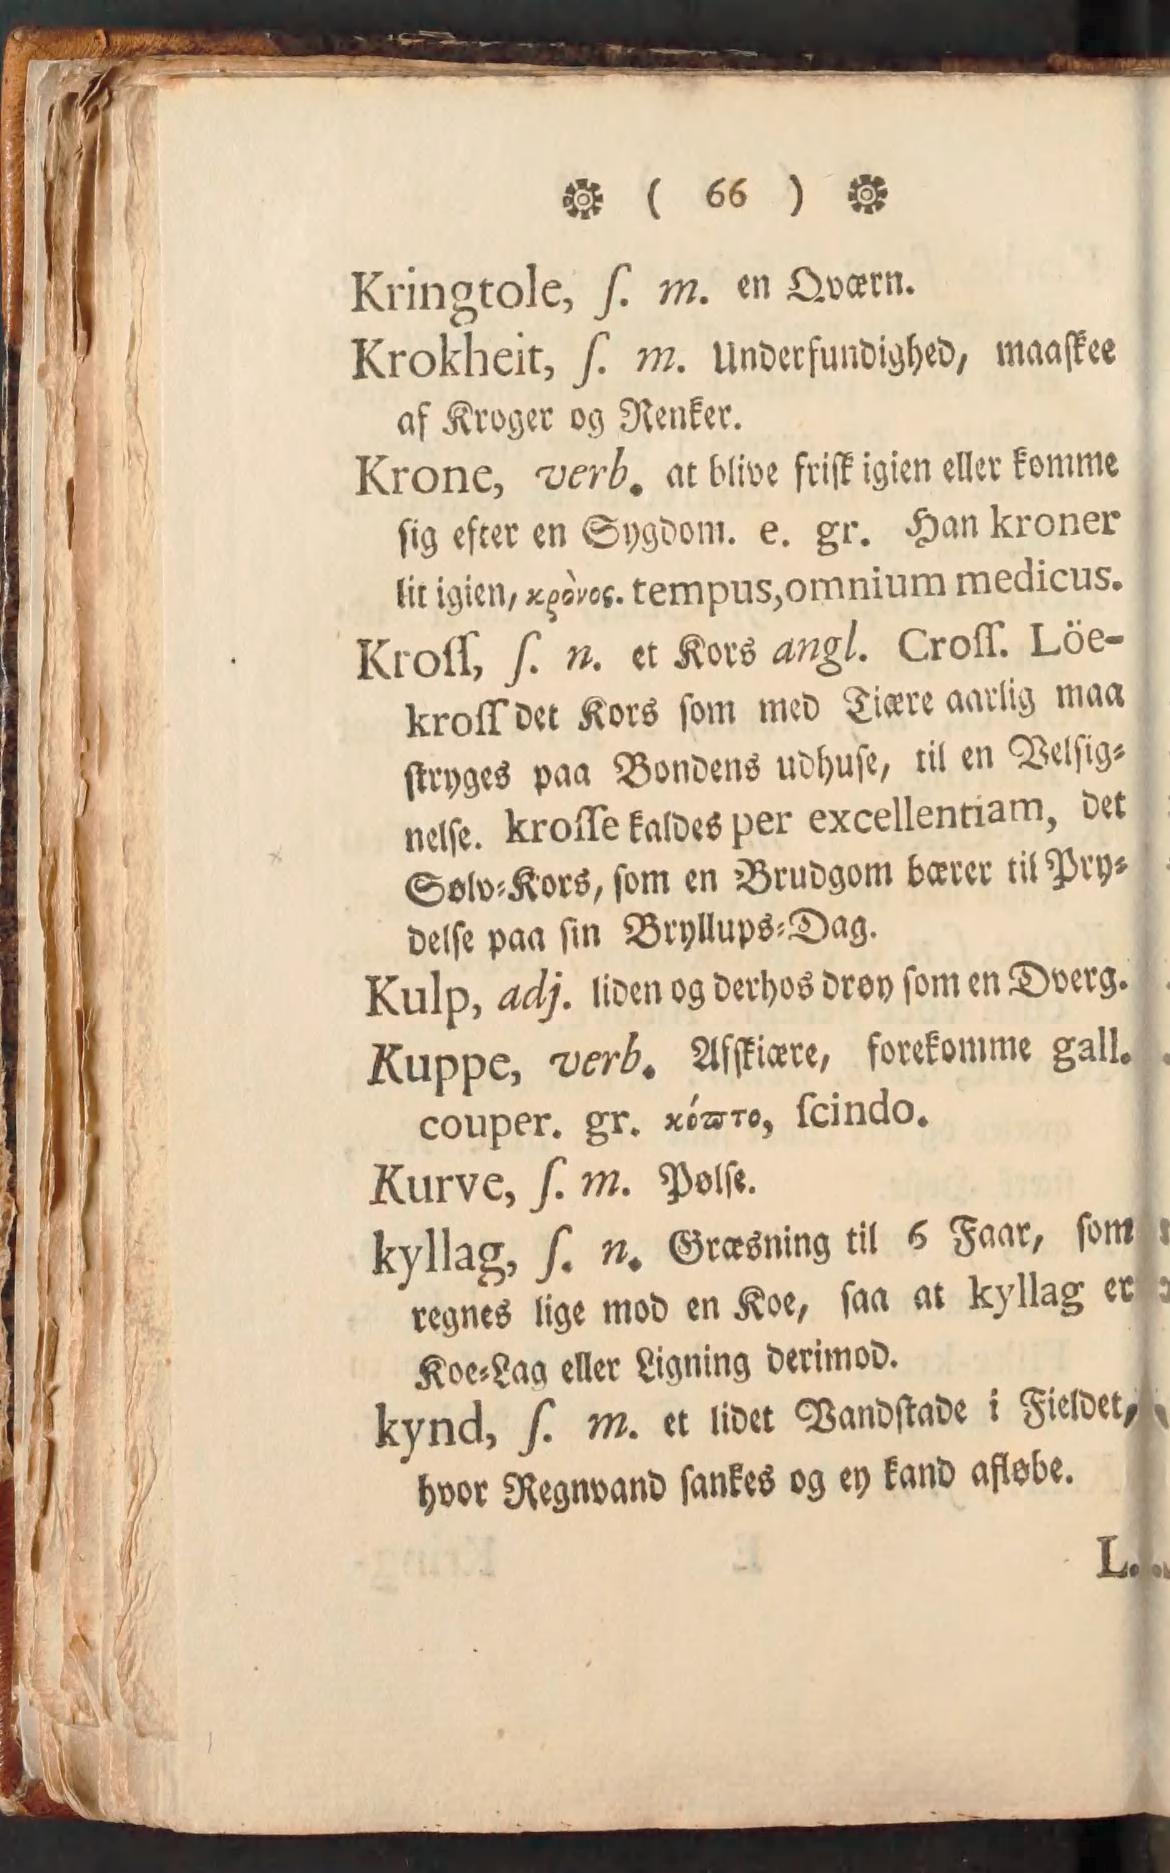 ❁ ( 66 ) ❁
Kringtole, ſ. m. en Qværn.
Krokheit, ſ. m. Underfundighed, maaſkee
af Kroger og Renker.
Krone, verb. at blive friſk igien eller komme
ſig efter en Sygdom. e. gr. Han kroner
lit igien, κρὸνος. tempus, omnium medicus.
Kroſſ, ſ. n. et Kors angl. Croſſ. Löe-
kroſſ det Kors ſom med Tiære aarlig maa
ſtryges paa Bondens udhuſe, til en Velſig-
nelſe. kroſſe kaldes per excellentiam, det
Sølv-Kors, ſom en Brudgom bærer til Pry-
delſe paa ſin Bryllups-Dag.
Kulp, adj. liden og derhos drøy ſom en Dverg.
Kuppe, verb. Afſkiære, forekomme gall.
couper. gr. κόϖτο, ſcindo.
Kurve, ſ. m. Pølſe.
kyllag, ſ. n. Græsning til 6 Faar, ſom
regnes lige mod en Koe, ſaa at kyllag er
Koe-Lag eller Ligning derimod.
kynd, ſ. m. et lidet Vandſtade i Fieldet,
hvor Regnvand ſankes og ey kand afløbe.
L.